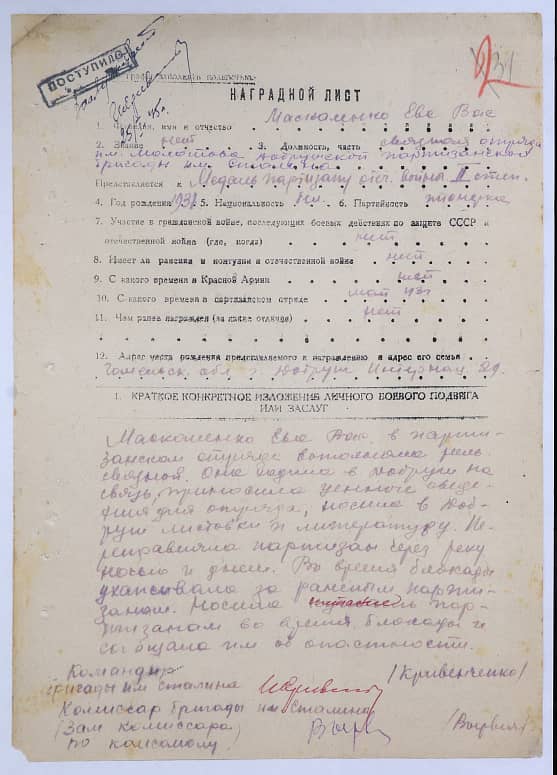 ПОСТУПИЛО
231
НАГРАДНОЙ ЛИСТ
1. Фамилия, имя и отчество Маскаленко Ева Вас
2. Звание нет 3. Должность, часть связная отряда
им. Молотова Добрушской партизанской
бригады им. Сталина
Представляется к Медаль партизану отеч. войны II степ.
4. Год рождения 1931 5. Национальность 6. Партийность пионерка
7. Участие в гражданской войне, последующих боевых действиях по защите СССР и
отечественной войне (где, когда) нет
8. Имеет ли ранения и контузии в отечественной войне нет
9. С какого времени в Красной Армии нет
10. С какого времени в партизанском отряде май 43г
11. Чем ранее награжден (за какие отличия) нет
12. Адрес места рождения представляемого к награждению и адрес его семьи
Гомельск. обл г. Добруш Интернац.
1. КРАТКОЕ КОНКРЕТНОЕ ИЗЛОЖЕНИЕ ЛИЧНОГО БОЕВОГО ПОДВИГА
ИЛИ ЗАСЛУГ
Маскаленко Ева Вас. в парти-
занском отряде выполняла роль
связной. Она ходила в Добруш на
связь, приносила ценные сведе-
ния для отряда, носила в Доб-
руш листовки и литературу. Пе-
реправляла партизан через реку
ночью и днем. Во время блокады
ухаживала за раненым парти-
заном. Носила пар-
тизанам во время блокады и
сообщала им об опасности.
Командир
бригады им Сталина /Кривенченко/
Комиссар бригады им Сталина
(Зам комиссара
по комсомолу)